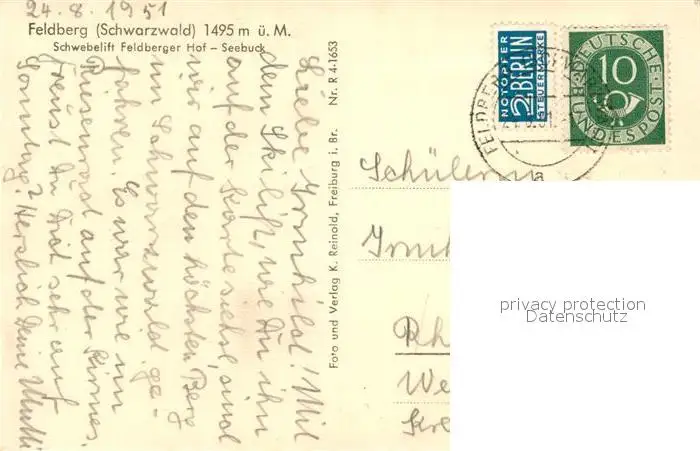 24.8.1951
Feldberg (Schwarzwald) 1495 m ü. M.
Schwebelift Feldberger Hof – Seebuck
Liebe Irmhild! Mit
dem Skilift, wie Du ihn
auf der Karte siehst, sind
wir auf den höchsten Berg
im Schwarzwald ge-
fahren. Es war wie im
Riesenrad auf der Kirmes.
Freust Du Dich sehr auf
Sonntag? Herzlich Deine Mutti
Nr. R 4-1653
Foto und Verlag K. Reinold, Freiburg i. Br.
NOTOPFER
2 BERLIN
STEUERMARKE
DEUTSCHE BUNDESPOST
10
FELDBERG
Schülerin
Irmh
Rh
We
Kre
privacy protection
Datenschutz